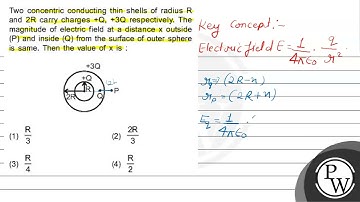 Two concentric conducting thin shells of radius R
and 2R carry charges +Q, +3Q respectively. The
magnitude of electric field at a distance x outside
(P) and inside (Q) from the surface of outer sphere
is same. Then the value of x is :
Key Concept:-
Electric field E = 1/4πε₀ · q/r²
+3Q
+Q
R
2R
Q
P
r_p = (2R+x)
E_q = 1/4πε₀
(1) R/3
(2) 2R/3
(3) R/4
(4) R/2
PW